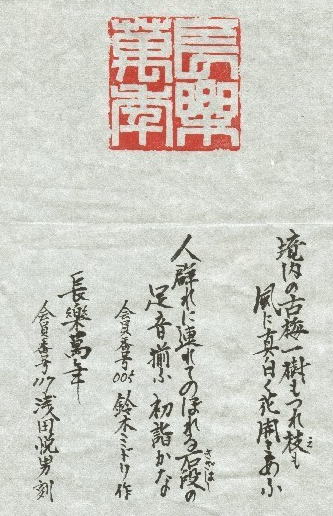 長樂萬年
境内の古梅一樹もつれ枝も
風に真白く花開きあふ
人群れに連れてのぼれる石段の
足音揃ふ初詣かな
会員番号005 鈴木ミドリ作
長樂萬年
会員番号117 浅田悦男刻